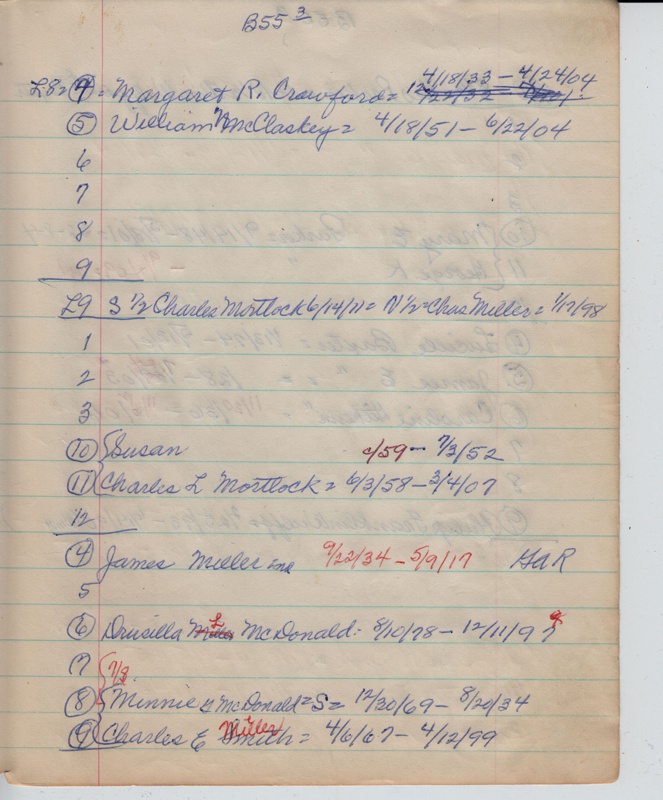 B55 3
L8= 4 = Margaret R. Crawford = 4/18/33 – 4/24/04
5 William McClaskey = 4/18/51 – 6/22/04
6
7
8
9
L9 S 1/2 Charles Mortlock 6/14/11 = N 1/2 = Chas Miller = 1/17/98
1
2
3
10 Susan c/59 – 7/3/52
11 Charles L Mortlock = 6/3/58 – 3/4/07
12
4 James Miller 9/22/34 – 5/9/17 GAR
5
6 Drusilla L McDonald: 8/10/78 – 12/11/97
7
8 Minnie McDonald = S = 12/30/69 – 8/20/34
9 Charles E Miller = 4/6/67 – 4/12/99